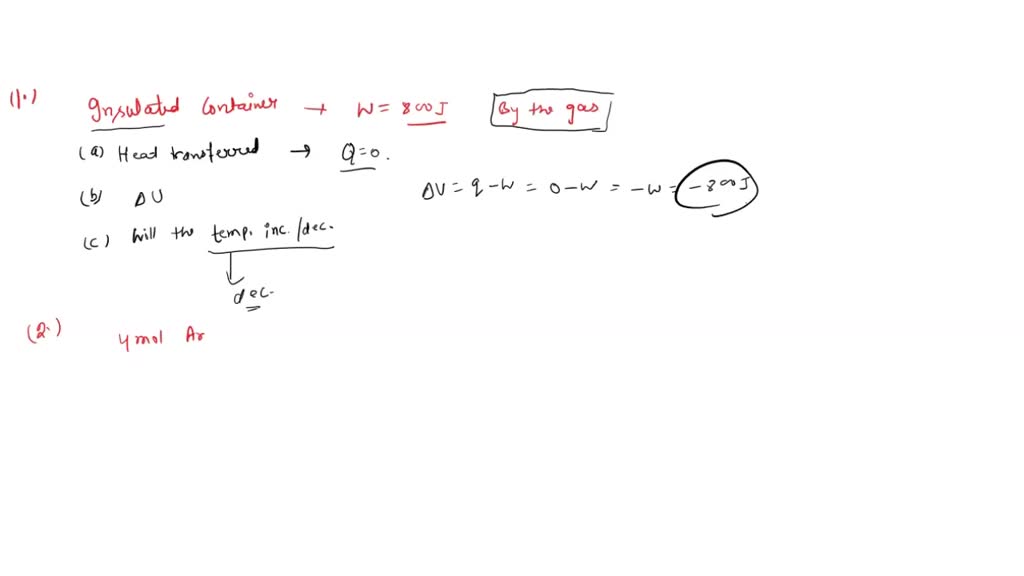 (1.) Insulated Container → W = 800J By the gas
(a) Heat transferred → Q=0.
(b) ΔU ΔU = q - W = 0 - W = -W = -800J
(c) Will the temp. inc./dec.
dec.
(2.) 4 mol Ar